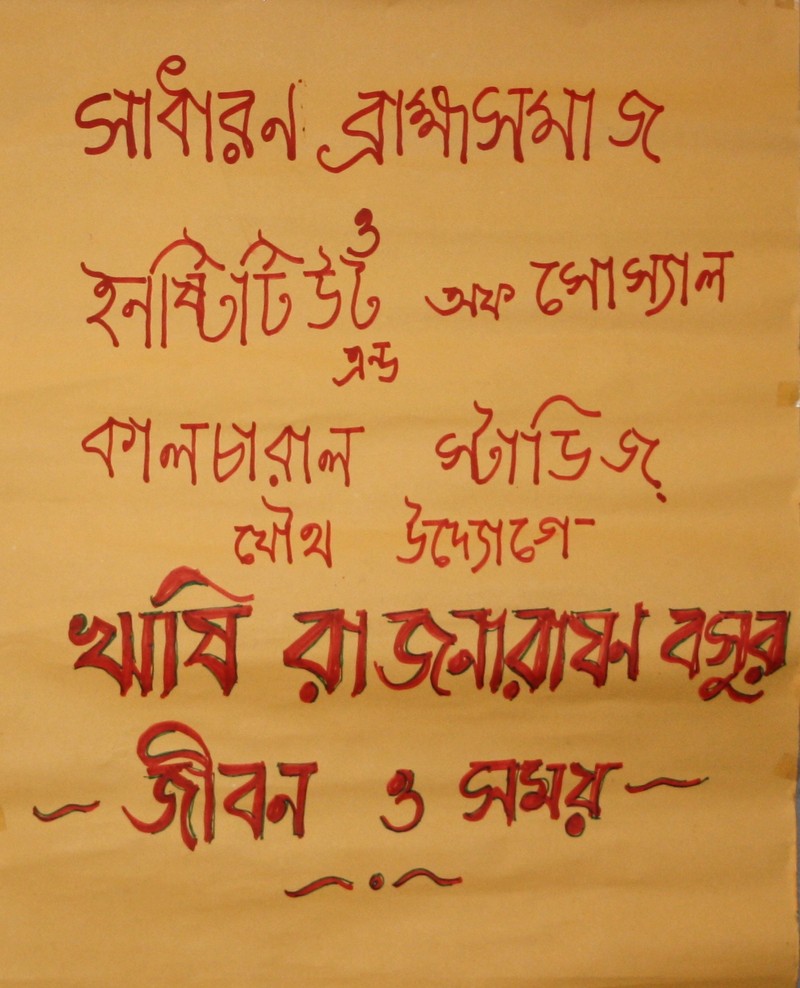 সাধারন ব্রাহ্মসমাজ
ও
ইনষ্টিটিউট অফ সোস্যাল
এন্ড
কালচারাল স্টাডিজ়
যৌথ উদ্যোগে
ঋষি রাজনারায়ণ বসুর
~ জীবন ও সময় ~
~•~